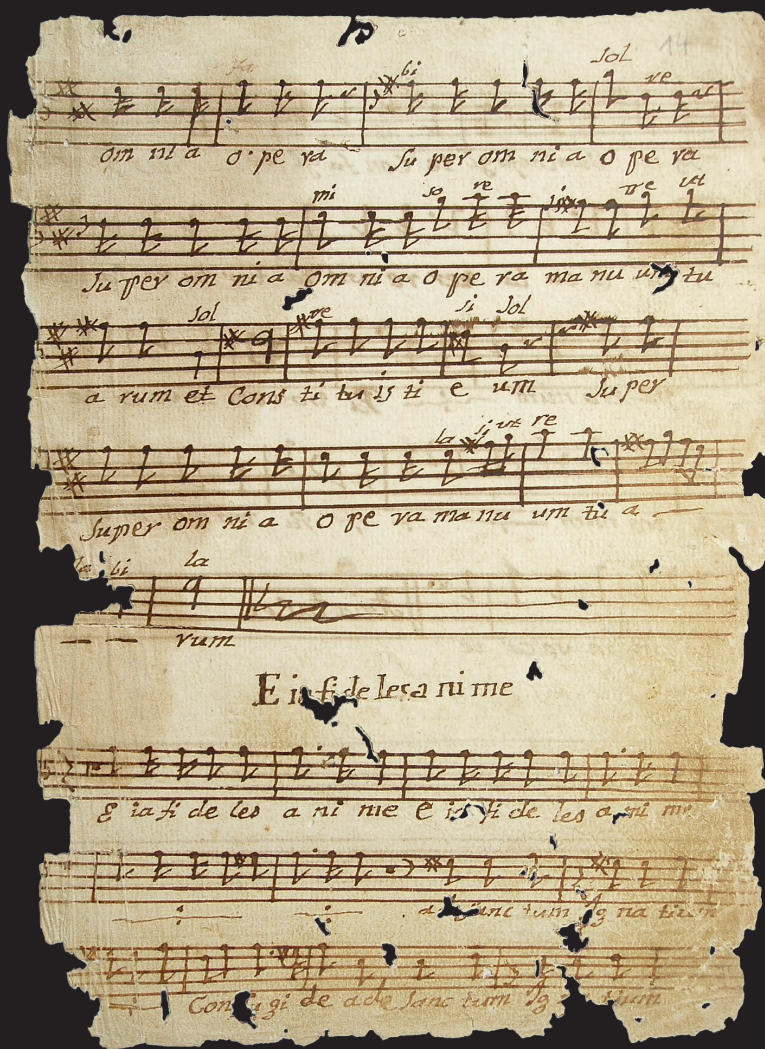 14
bi sol re
om ni a o pe ra Su per om ni a o pe ra
mi so re si re ut
Su per om ni a om ni a o pe ra ma nu um tu
sol re si sol
a rum et Cons ti tu is ti e um Su per
la si ut re
Super om ni a o pe ra ma nu um tu a
bi la
rum
E ia fi de les a ni me
E ia fi de les a ni me E ia fi de les a ni me
ad Sanc tum Ig na tium
Con fu gi de a de Sanc tum Ig tium